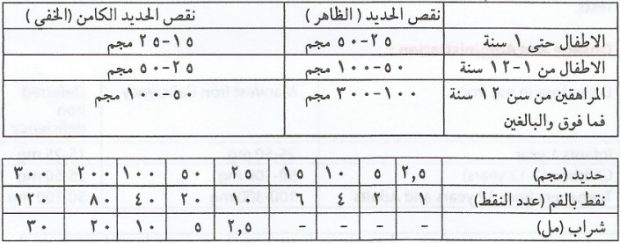 نقص الحديد ( الظاهر ) نقص الحديد الكامن (الخفي)
الاطفال حتى ١ سنة ٢٥-٥٠ مجم ١٥-٢٥ مجم
الاطفال من ١-١٢ سنة ٥٠-١٠٠ مجم ٢٥-٥٠ مجم
المراهقين من سن ١٢ سنة ١٠٠-٣٠٠ مجم ٥٠-١٠٠ مجم
فما فوق والبالغين
حديد (مجم) ٢,٥ ٥ ١٠ ١٥ ٢٥ ٥٠ ١٠٠ ٢٠٠ ٣٠٠
نقط بالفم (عدد النقط) ١ ٢ ٤ ٦ ١٠ ٢٠ ٤٠ ٨٠ ١٢٠
شراب (مل) - - - - ٢,٥ ٥ ١٠ ٢٠ ٣٠